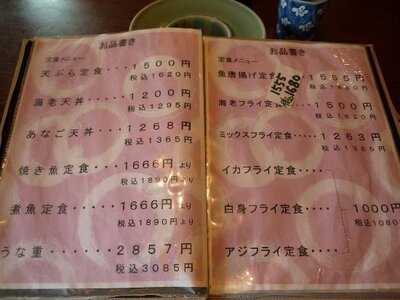 お品書き
定食メニュー
天ぷら定食・・・・1500円
税込1620円
海老天丼・・・・・1200円
税込1295円
あなご天丼・・・・1268円
税込1365円
焼き魚定食・・・・1666円より
税込1890円より
煮魚定食・・・・・1666円より
税込1890円より
うな重・・・・・・2857円
税込3085円
お品書き
定食メニュー
魚唐揚げ定食
1555円
1555
税1680
海老フライ定食・・・・1500円
税込1620円
ミックスフライ定食・・・・1263円
税込1365円
イカフライ定食・・・・
白身フライ定食・・・・1000円
税込1080
アジフライ定食・・・・